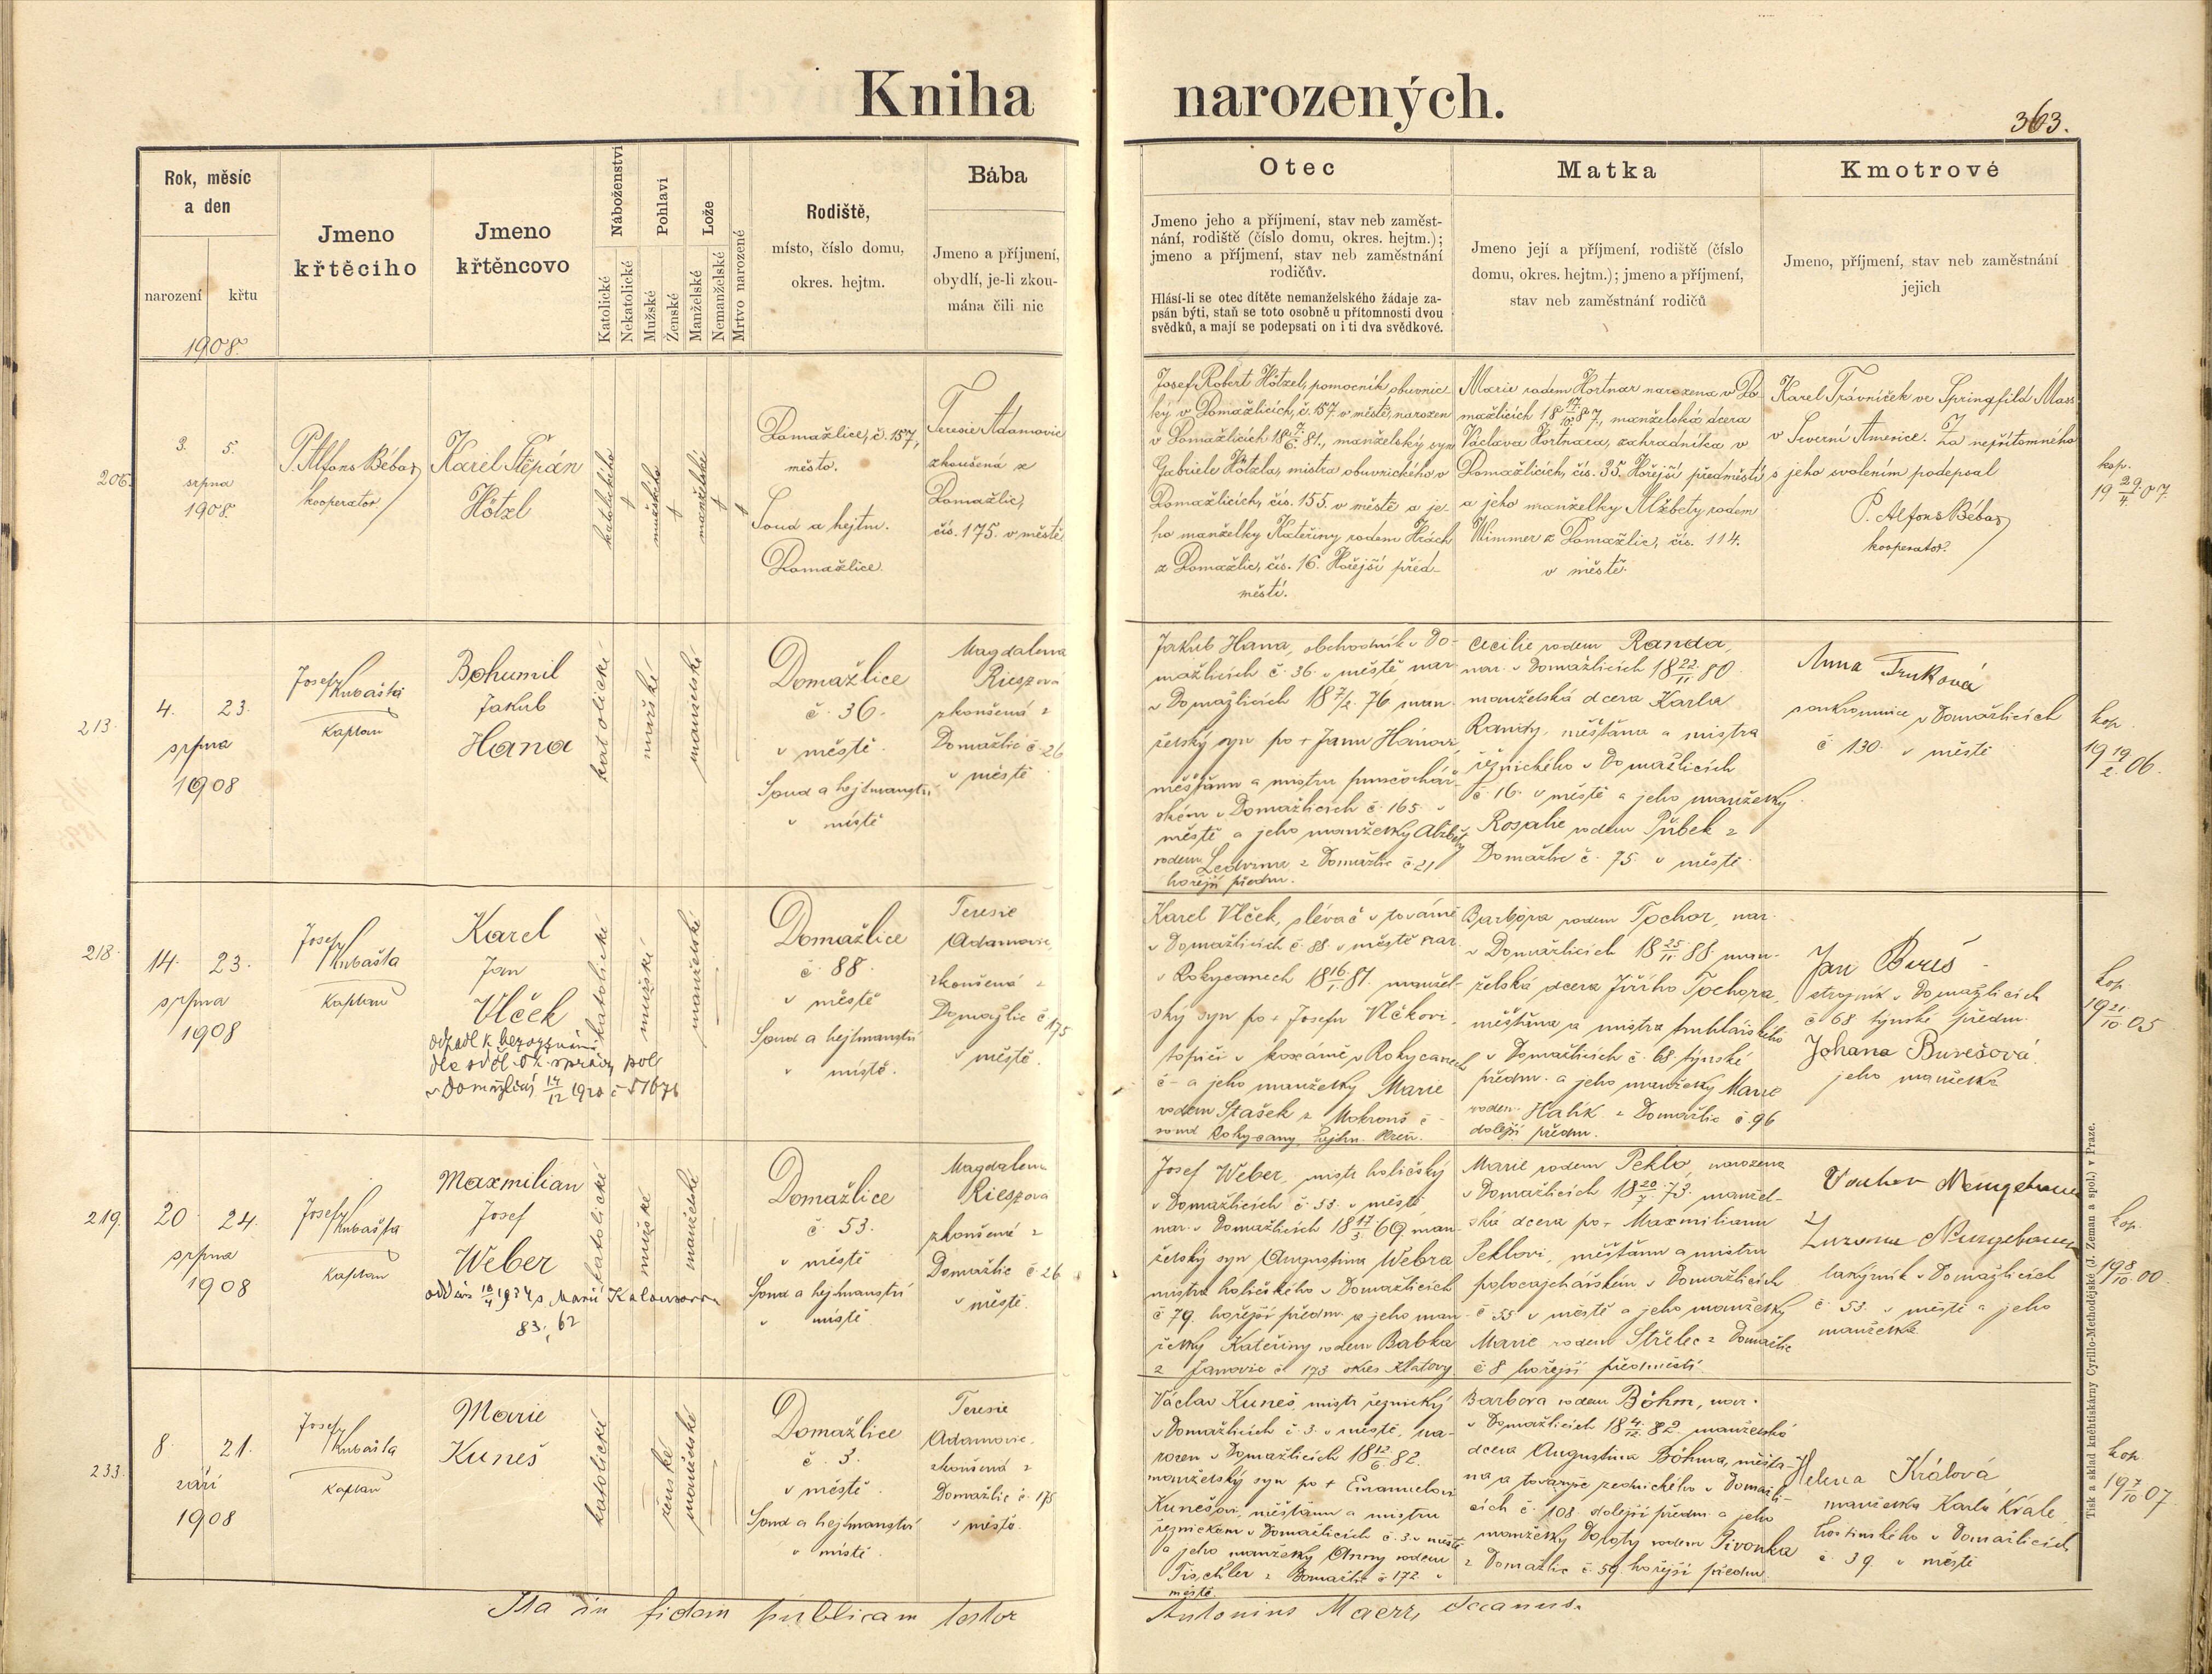 Kniha narozených.
363.
Rok, měsíc
a den
narození
křtu
1908.
Jmeno
křtěcího
Jmeno
křtěncovo
Náboženství
Katolické
Nekatolické
Pohlaví
Mužské
Ženské
Lože
Manželské
Nemanželské
Mrtvo narozené
Rodiště,
místo, číslo domu,
okres. hejtm.
Bába
Jmeno a příjmení,
obydlí, je-li zkou-
mána čili nic
Otec
Jmeno jeho a příjmení, stav neb zaměst-
nání, rodiště (číslo domu, okres. hejtm.);
jmeno a příjmení, stav neb zaměstnání
rodičův.
Hlásí-li se otec dítěte nemanželského žádaje za-
psán býti, staň se toto osobně u přítomnosti dvou
svědků, a mají se podepsati on i ti dva svědkové.
Matka
Jmeno její a příjmení, rodiště (číslo
domu, okres. hejtm.); jmeno a příjmení,
stav neb zaměstnání rodičů
Kmotrové
Jmeno, příjmení, stav neb zaměstnání
jejich
206.
3. 5.
srpna
1908.
P. Alfons Bébar
kooperator
Karel Štěpán
Hötzl
katolického
mužského
manželské
Domažlice, č. 157,
město.
Soud a hejtm.
Domažlice.
Teresie Adamovic
zkoušená z
Domažlic,
čís. 175. v městě
Josef Robert Hötzel, pomocník obuvnic-
ký v Domažlicích, č. 157 v městě, narozen
v Domažlicích 18 7/6. 81., manželský syn
Gabriele Hötzla, mistra obuvnického v
Domažlicích, čís. 155. v městě a je-
ho manželky Kateřiny rodem Hrách
z Domažlic, čís. 16. Hořejší před-
městí.
Marie rodem Hortnar narozena v Do-
mažlicích 18 17/10. 87., manželská dcera
Václava Hortnara, zahradníka v
Domažlicích, čís. 35. Hořejší předměstí
a jeho manželky Alžbety rodem
Wimmer z Domažlic, čís. 114.
v městě.
Karel Trávníček ve Springfild Mass
v Severní Americe. Za nepřítomného
s jeho svolením podepsal
P. Alfons Bébar
kooperator.
kop.
19 29/4. 07
213.
4. 23.
srpna
1908
Josef Kubašta
Kaplan
Bohumil
Jakub
Hana
katolické
mužské
manželské
Domažlice
č. 36.
v městě.
Soud a hejtmanství
v místě
Magdalena
Rieszová
zkoušená z
Domažlic č. 26
v městě
Jakub Hana, obchodník v Do-
mažlicích č. 36. v městě, nar.
v Domažlicích 18 7/2. 76 man-
želský syn po + Janu Hánovi,
měšťanu a mistru punčochář-
ském v Domažlicích č. 165. v
městě a jeho manželky Alžběty
rodem Ledvina z Domažlic č. 21
hořejší předm.
Cecilie rodem Randa,
nar. v Domažlicích 18 22/11. 80.
manželská dcera Karla
Randy, měšťana a mistra
řeznického v Domažlicích
č. 16. v městě a jeho manželky
Rosalie rodem Přibek z
Domažlic č. 75. v městě.
Anna
soukromnice v Domažlicích
č 130. v městě
kop.
19 19/2. 06.
218.
14. 23.
srpna
1908
Josef Kubašta
Kaplan
Karel
Jan
Vlček
odpadl k bezvyznání
dle sděl. ok. správy pol
v Domažlicích 14/12 1920 č 51676
katolické
mužské
manželské
Domažlice
č. 88.
v městě
Soud a hejtmanství
v místě.
Teresie
Adamovic,
zkoušená z
Domažlic č. 175
v městě.
Karel Vlček, slévač v továrně
v Domažlicích č. 88. v městě nar.
v Rokycanech 18 16/1. 81. manžel-
ský syn po + Josefu Vlčkovi,
topiči v koxárně v Rokycanech
č - a jeho manželky Marie
rodem Stašek z Mokrouš č -
soud Rokycany, hejtm. Plzeň.
Barbora rodem Tochor, nar.
v Domažlicích 18 25/11. 88 man-
želská dcera Jiřího Tochora,
měšťana a mistra truhlářského
v Domažlicích č. 68. týnské
předm. a jeho manželky Marie
rodem Halík z Domažlic č. 96
dolejší předm.
Jan Bureš
strojník v Domažlicích
č 68 týnské předm.
Johana Burešová
jeho manželka
kop.
19 21/10. 05
219.
20 24.
srpna
1908
Josef Kubašta
Kaplan
Maxmilian
Josef
Weber
oddán 10/4 1934 s Marií
83, 62
katolické
mužské
manželské
Domažlice
č 53.
v městě
Soud a hejtmanství
v místě
Magdalena
Rieszova
zkoušená z
Domažlic č 26
v městě.
Josef Weber, mistr holičský
v Domažlicích č. 53. v městě
nar. v Domažlicích 18 17/3 69 man-
želský syn Augustina Webra
mistra holičského v Domažlicích
č 79. hořejší předm. a jeho man-
želky Kateřiny rodem Babka
z Janovic č 173 okres Klatovy
Marie rodem Peklo, narozena
v Domažlicích 18 20/7. 73. manžel-
ská dcera po + Maximilianu
Peklovi, měšťanu a mistru
v Domažlicích
č 55 v městě a jeho manželky
Marie rodem Střelec z Domažlic
č 8 hořejší předměstí
Neugebauer
Zuzana Neugebauer
lakýrník v Domažlicích
č 53. v městě a jeho
manželka
kop.
19 8/10. 00.
233.
8. 21.
září
1908
Josef Kubašta
Kaplan
Marie
Kuneš
katolické
ženské
manželské
Domažlice
č. 3.
v městě.
Soud a hejtmanství
v místě.
Teresie
Adamovic.
zkoušená z
Domažlic č. 175
v městě.
Václav Kuneš, mistr řeznický
v Domažlicích č 3. v městě, na-
rozen v Domažlicích 18 12/6. 82.
manželský syn po + Emanuelovi
Kunešovi, měšťanu a mistru
řeznickém v Domažlicích č. 3. v městě
a jeho manželky Anny rodem
Tischler z Domažlic č 172. v
městě.
Barbora rodem Böhm, nar.
v Domažlicích 18 4/12. 82. manželská
dcera Augustina Böhma, měšťa-
na a tovaryše zednického v Domažli-
cích č. 108. dolejší předm. a jeho
manželky Doroty rodem Pivonka
z Domažlic č. 59. hořejší předm.
Helena Králová
manželka Karla Krále
hostinského v Domažlicích
č. 39. v městě
kop.
19 7/10 07
Ita in fidem publicam testor
Antonius Maerz, decanus.
Tisk a sklad knihtiskárny Cyrillo-Methodějské (J. Zeman a spol.) v Praze.